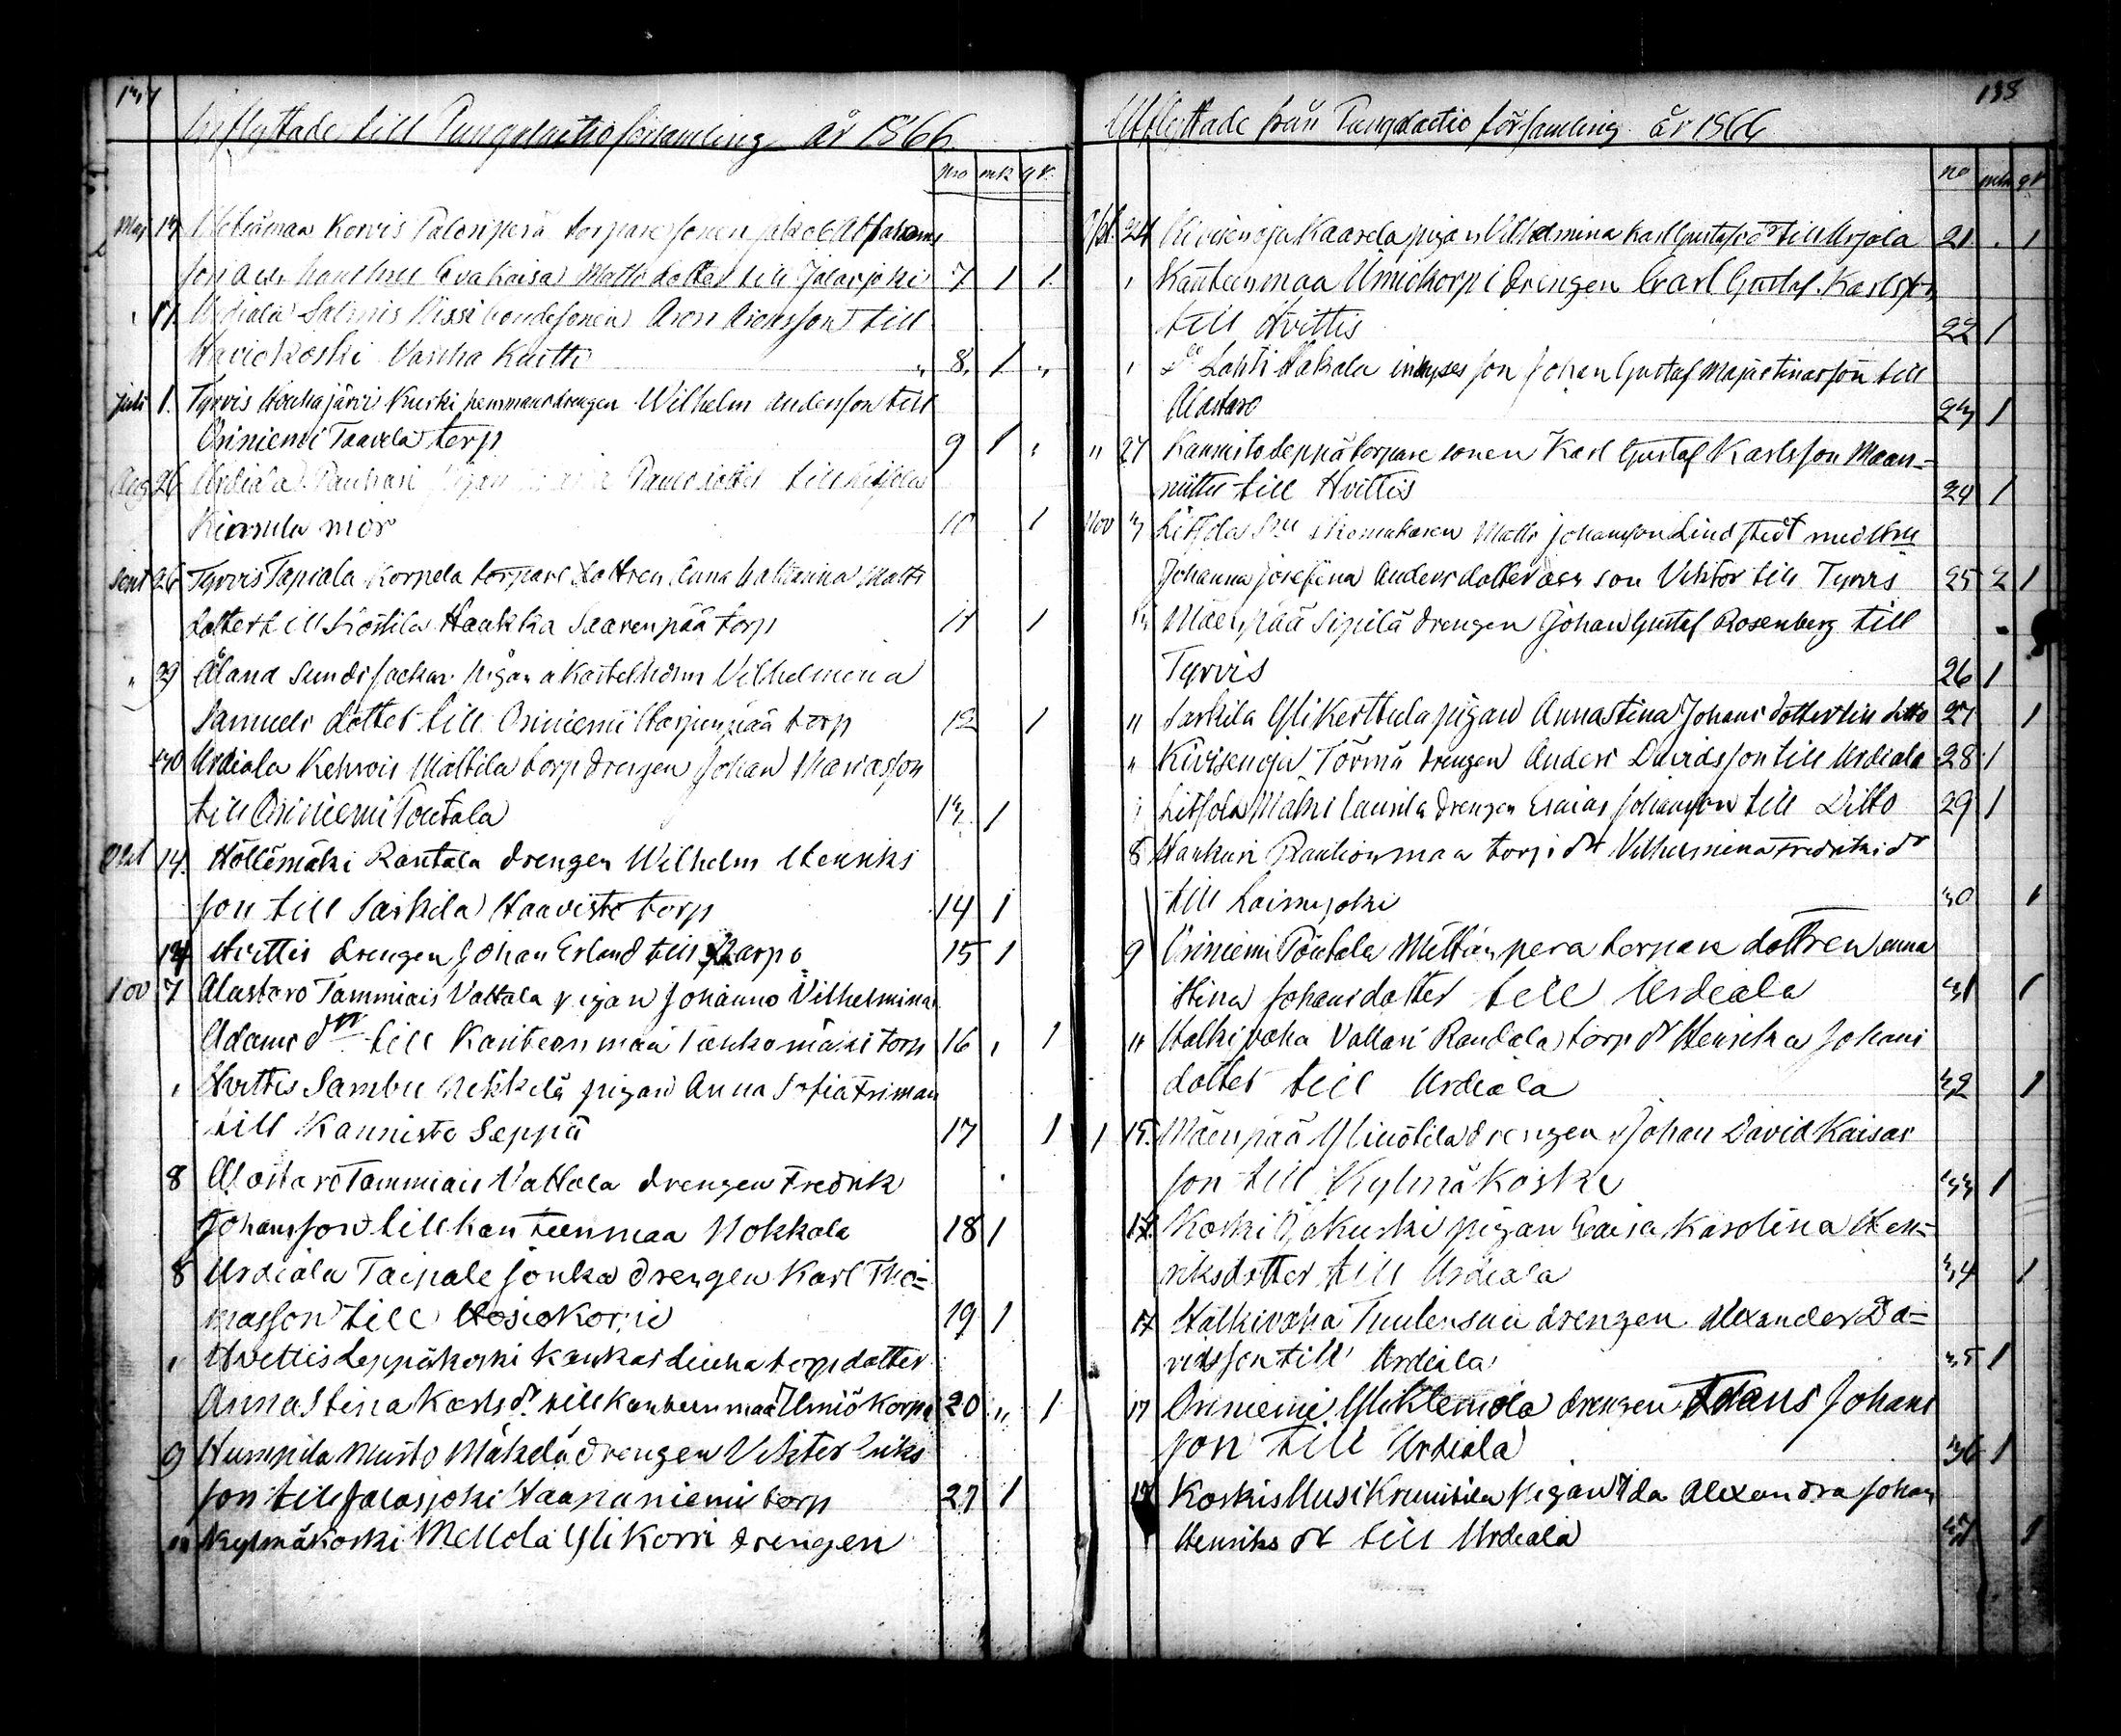 Inflyttade till Pungalaitio församling år 1866.
nro mk qk.
Maj 13 Metsämaa Korvis Palonperä torparesonen Jakob Abrahams
son och hustru Eva Kaisa Matts dotter till Jalasjoki 7 1 1
" 17 Urdiala Salmis Nissi bondesonen Aron Aronsson till
Haviokoski Vanha Kaitti " 8. 1 "
Juli 1. Tyrvis Houhajärvi Kurki hemmansdrengen Wilhelm Anderson till
Oriniemi Taavela torp 9 1 "
Aug 26 Urdiala Pauhari pigan Pauls dotter till Litsola
Kiarula mor 10 1
Sept 26 Tyrvis Tapiala Korpela torpare dottren Anna Catharina Matts
dotter till Kostila Haukka Saarenpää torp 11 1
" 29 Åland Sunds socken pigan a Kastelholm Vilhelmina
Samuels dotter till Oriniemi Harjunpää torp 12 1
30 Urdiala Kehrois Mattila torp drengen Johan Mariasson
till Oriniemi Poutala 13. 1
Okt 14. Höllömäki Rautala drengen Wilhelm Henriks
son till Sarkila Haavisto torp 14 1
14 Hvittis drengen Johan Erland till Karpo 15 1
Nov 7 Alastaro Tammiais Vattala pigan Johanna Vilhelmina
Adams dr till Kanteenmaa Tankomäki torp 16 , 1
" Hvittis Sambu Nekkelä pigan Anna Sofia Friman
till Kannisto Seppä 17 1
8 Alastaro Tammiais Vattala drengen Fredrik
Johansson till Kanteenmaa Nokkala 18 1
8 Urdiala Taipale Jonka drengen Karl Tho=
masson till Hosiokorpi 19 1
" Hvittis Leppäkoski Kankas Liuha torp dotter
Anna Stina Karls dr till Kanteenmaa Umiö Korpi 20 " 1
9 Humpila Murto Mäkelä drengen Vikter Eriks
son till Jalasjoki Haananiemi torp 21 1
" Kylmäkoski Mellola Yli Korri drengen
133
Utflyttade från Pungalaitio församling år 1866
no mk qk
Okt. 24 Kivisenoja Kaarela pigan Vilhelmina Karl Gustafs dr till Urjala 21 . 1
" Kanteenmaa Umiokorpi drengen Carl Gustaf Karlsson
till Hvittis 22 1
" do Lahti Hakala inhyses son Johan Gustaf Majastinasson till
Alastaro 23 1
" 27 Kannisto Seppä torpare sonen Karl Gustaf Karlsson Maan=
niittu till Hvittis 24 1
Nov 3 Litsola skomakaren Matts Johansson Lindstedt med hru
Johanna Josefina Anders dotter och son Viktor till Tyrvis 25 2 1
Mäenpää Sipilä drengen Johan Gustaf Rosenberg till
Tyrvis 26 1
" Sarkila Yli Kerttula pigan Anna Stina Johans dotter till ditto 27 1
" Kivisenoja Törmä drengen Anders Davidsson till Urdiala 28 1
" Litsola Matti Laurila drengen Esaias Johansson till Ditto 29 1
8 Hankuri Rautionmaa torp dr Vilhelmina Fredriks dr
till Loimijoki 30 1
9 Oriniemi Poutala Mettänperä torpare dottren Anna
Stina Johansdotter till Urdiala 31 1
" Halkivaha Vallari Randala torp dr Henrika Johans
dotter till Urdiala 32 1
15. Mäenpää Ylinötila drengen Johan David Kaisas
son till Kylmäkoski 33 1
17. Koski Ojakurki pigan Caisa Karolina Hen=
riksdotter till Urdiala 34 1
17 Halkivaha Tuulensuu drengen Alexander Da=
vidsson till Urdiala 35 1
17 Oriniemi Yliklemola drengen Frans Johans
son till Urdiala 36 1
17 Koskis Uusi Krunitila pigan Ida Alexandra Johan
Henriks dr till Urdiala 37 1